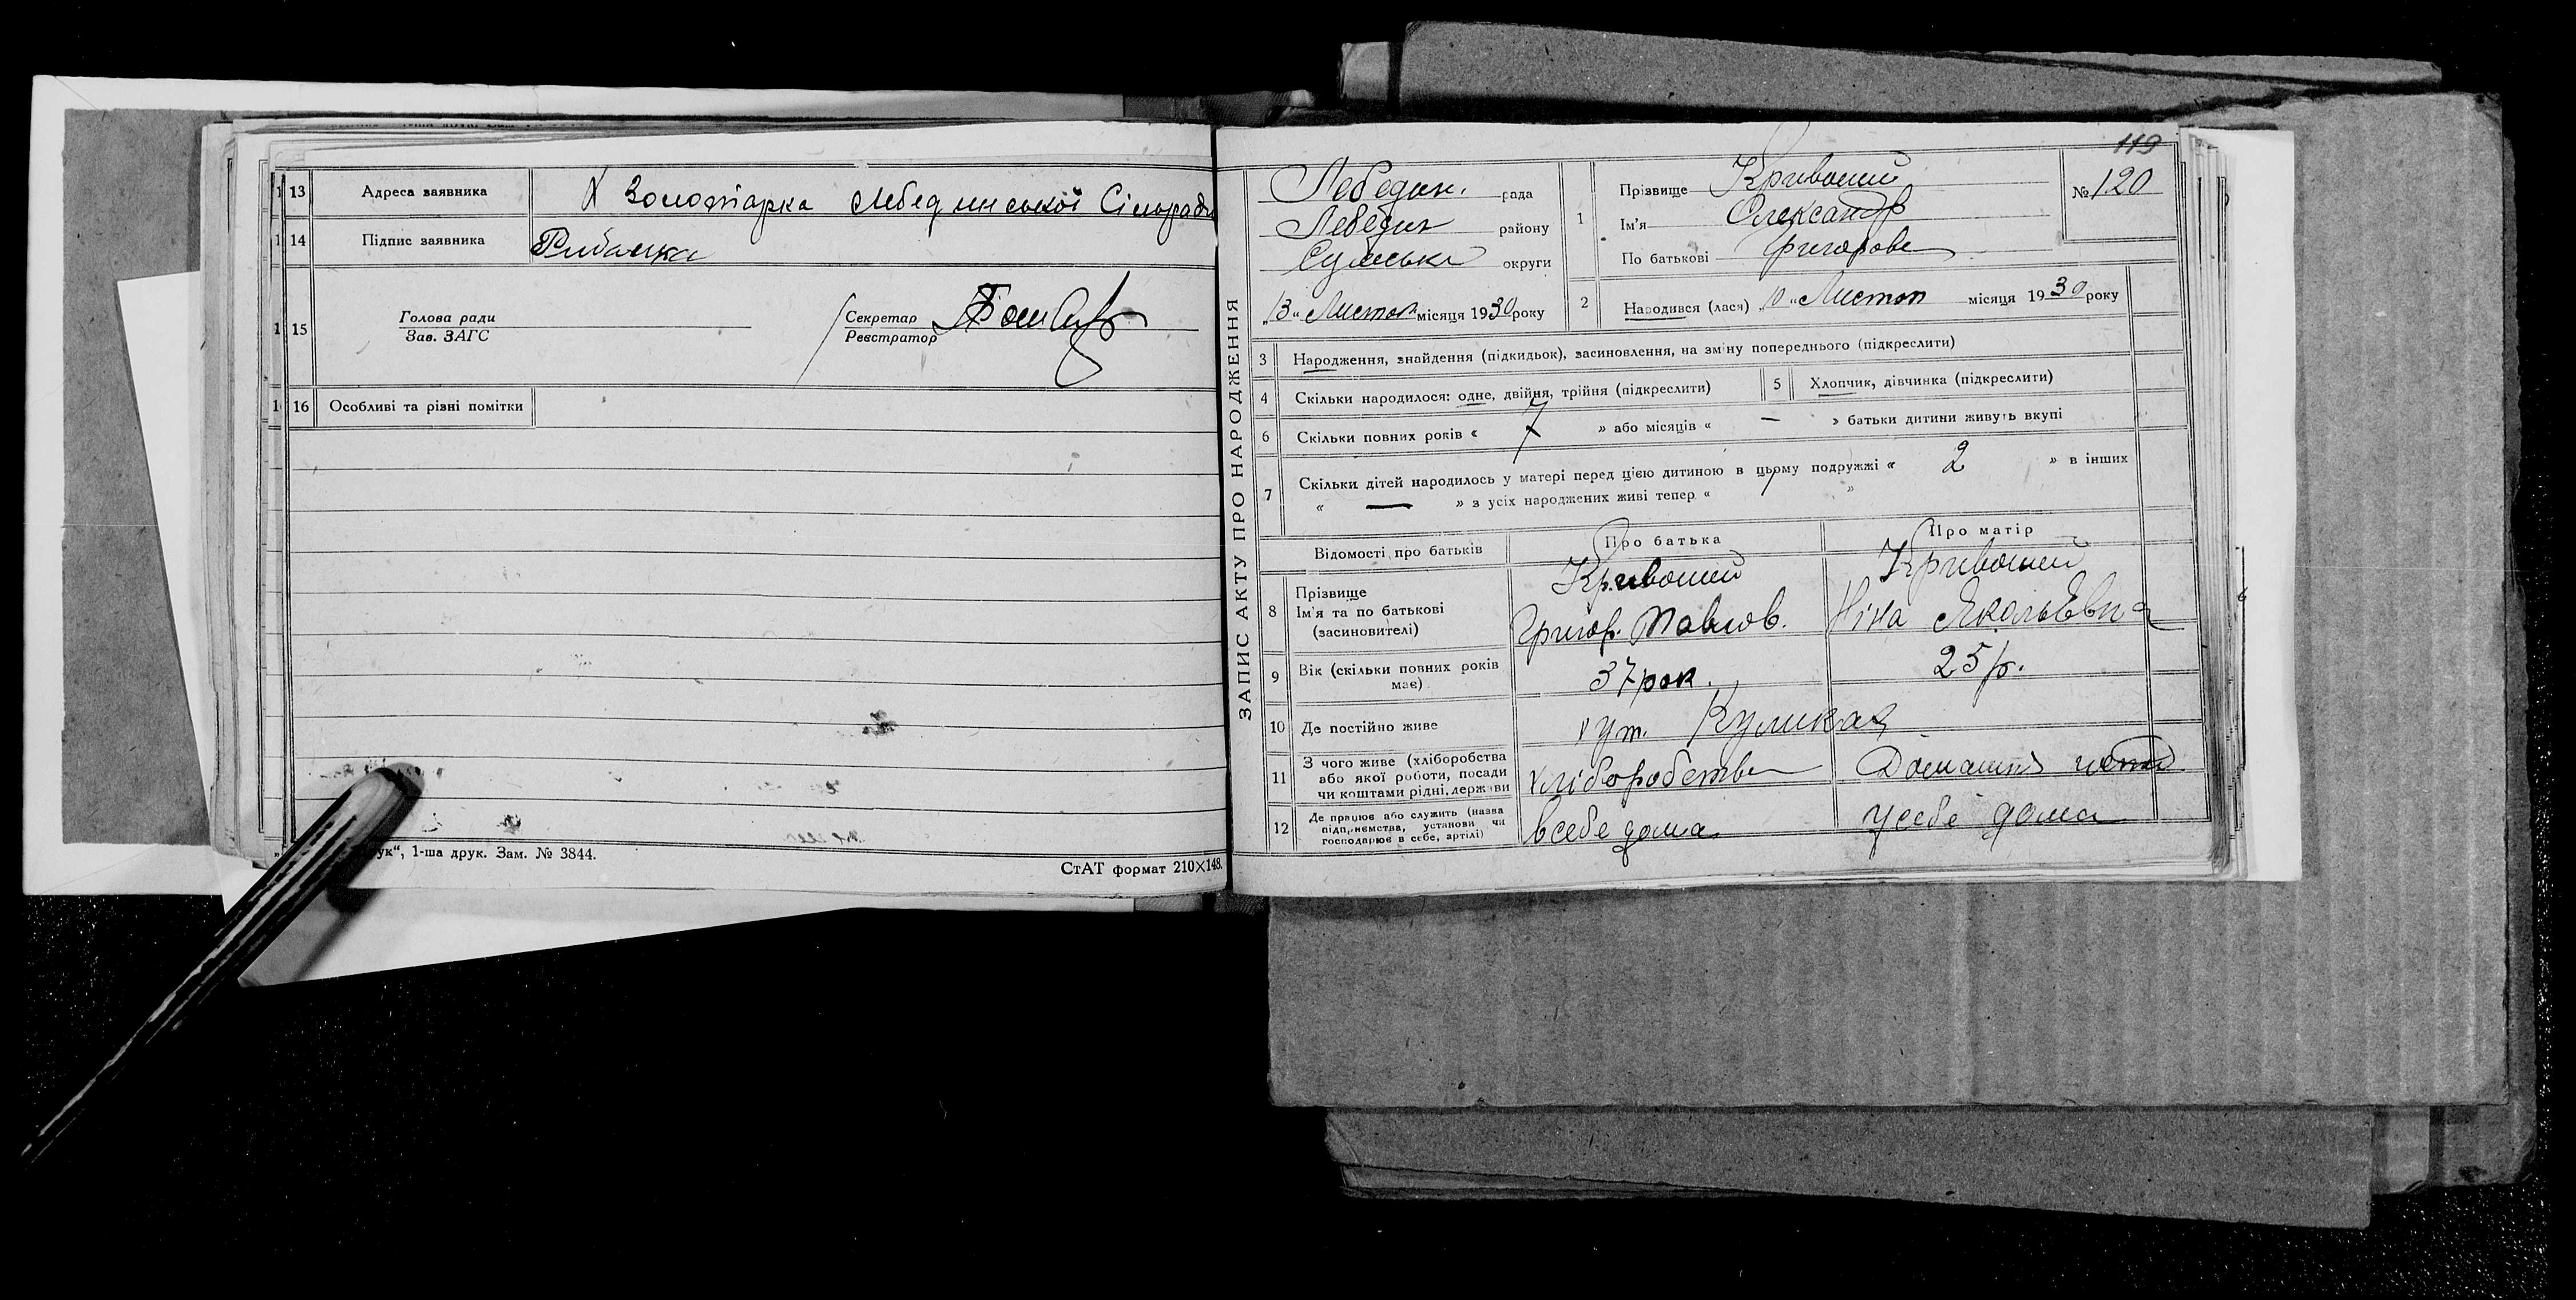 13 Адреса заявника Х Золотарка Лебединської Сільради
14 Підпис заявника Рибалка
15 Голова ради
Зав. ЗАГС
Секретар
Реєстратор
16 Особливі та різні помітки
ук“, 1-ша друк. Зам. № 3844.
СтАТ формат 210×148.
119
ЗАПИС АКТУ ПРО НАРОДЖЕННЯ
Лебедин. рада
Лебедин району
Сумська округи
„13“ Листоп місяця 1930 року
1 Прізвище Кривошей
Ім'я Олександр
По батькові Григорове
№ 120
2 Народився (лася) „10“ Листоп місяця 1930 року
3 Народження, знайдення (підкидьок), засиновлення, на зміну попереднього (підкреслити)
4 Скільки народилося: одне, двійня, трійня (підкреслити) 5 Хлопчик, дівчинка (підкреслити)
6 Скільки повних років « 7 » або місяців « — » батьки дитини живуть вкупі
7 Скільки дітей народилось у матері перед цією дитиною в цьому подружжі « 2 » в інших
« — » з усіх народжених живі тепер « 1 »
Відомості про батьків Про батька Про матір
8 Прізвище
Ім'я та по батькові
(засиновителі)
Кривошей
Григор. Павлов.
Кривошей
Ніна Яковлевна
9 Вік (скільки повних років має) 37 рок. 25 р.
10 Де постійно живе хут. Куликах
11 З чого живе (хліборобства
або якої роботи, посади
чи коштами рідні, держави
хліборобства Домашнь
12 Де працює або служить (назва
підприємства, установи чи
господарює в себе, артілі)
всебе дома усебе дома